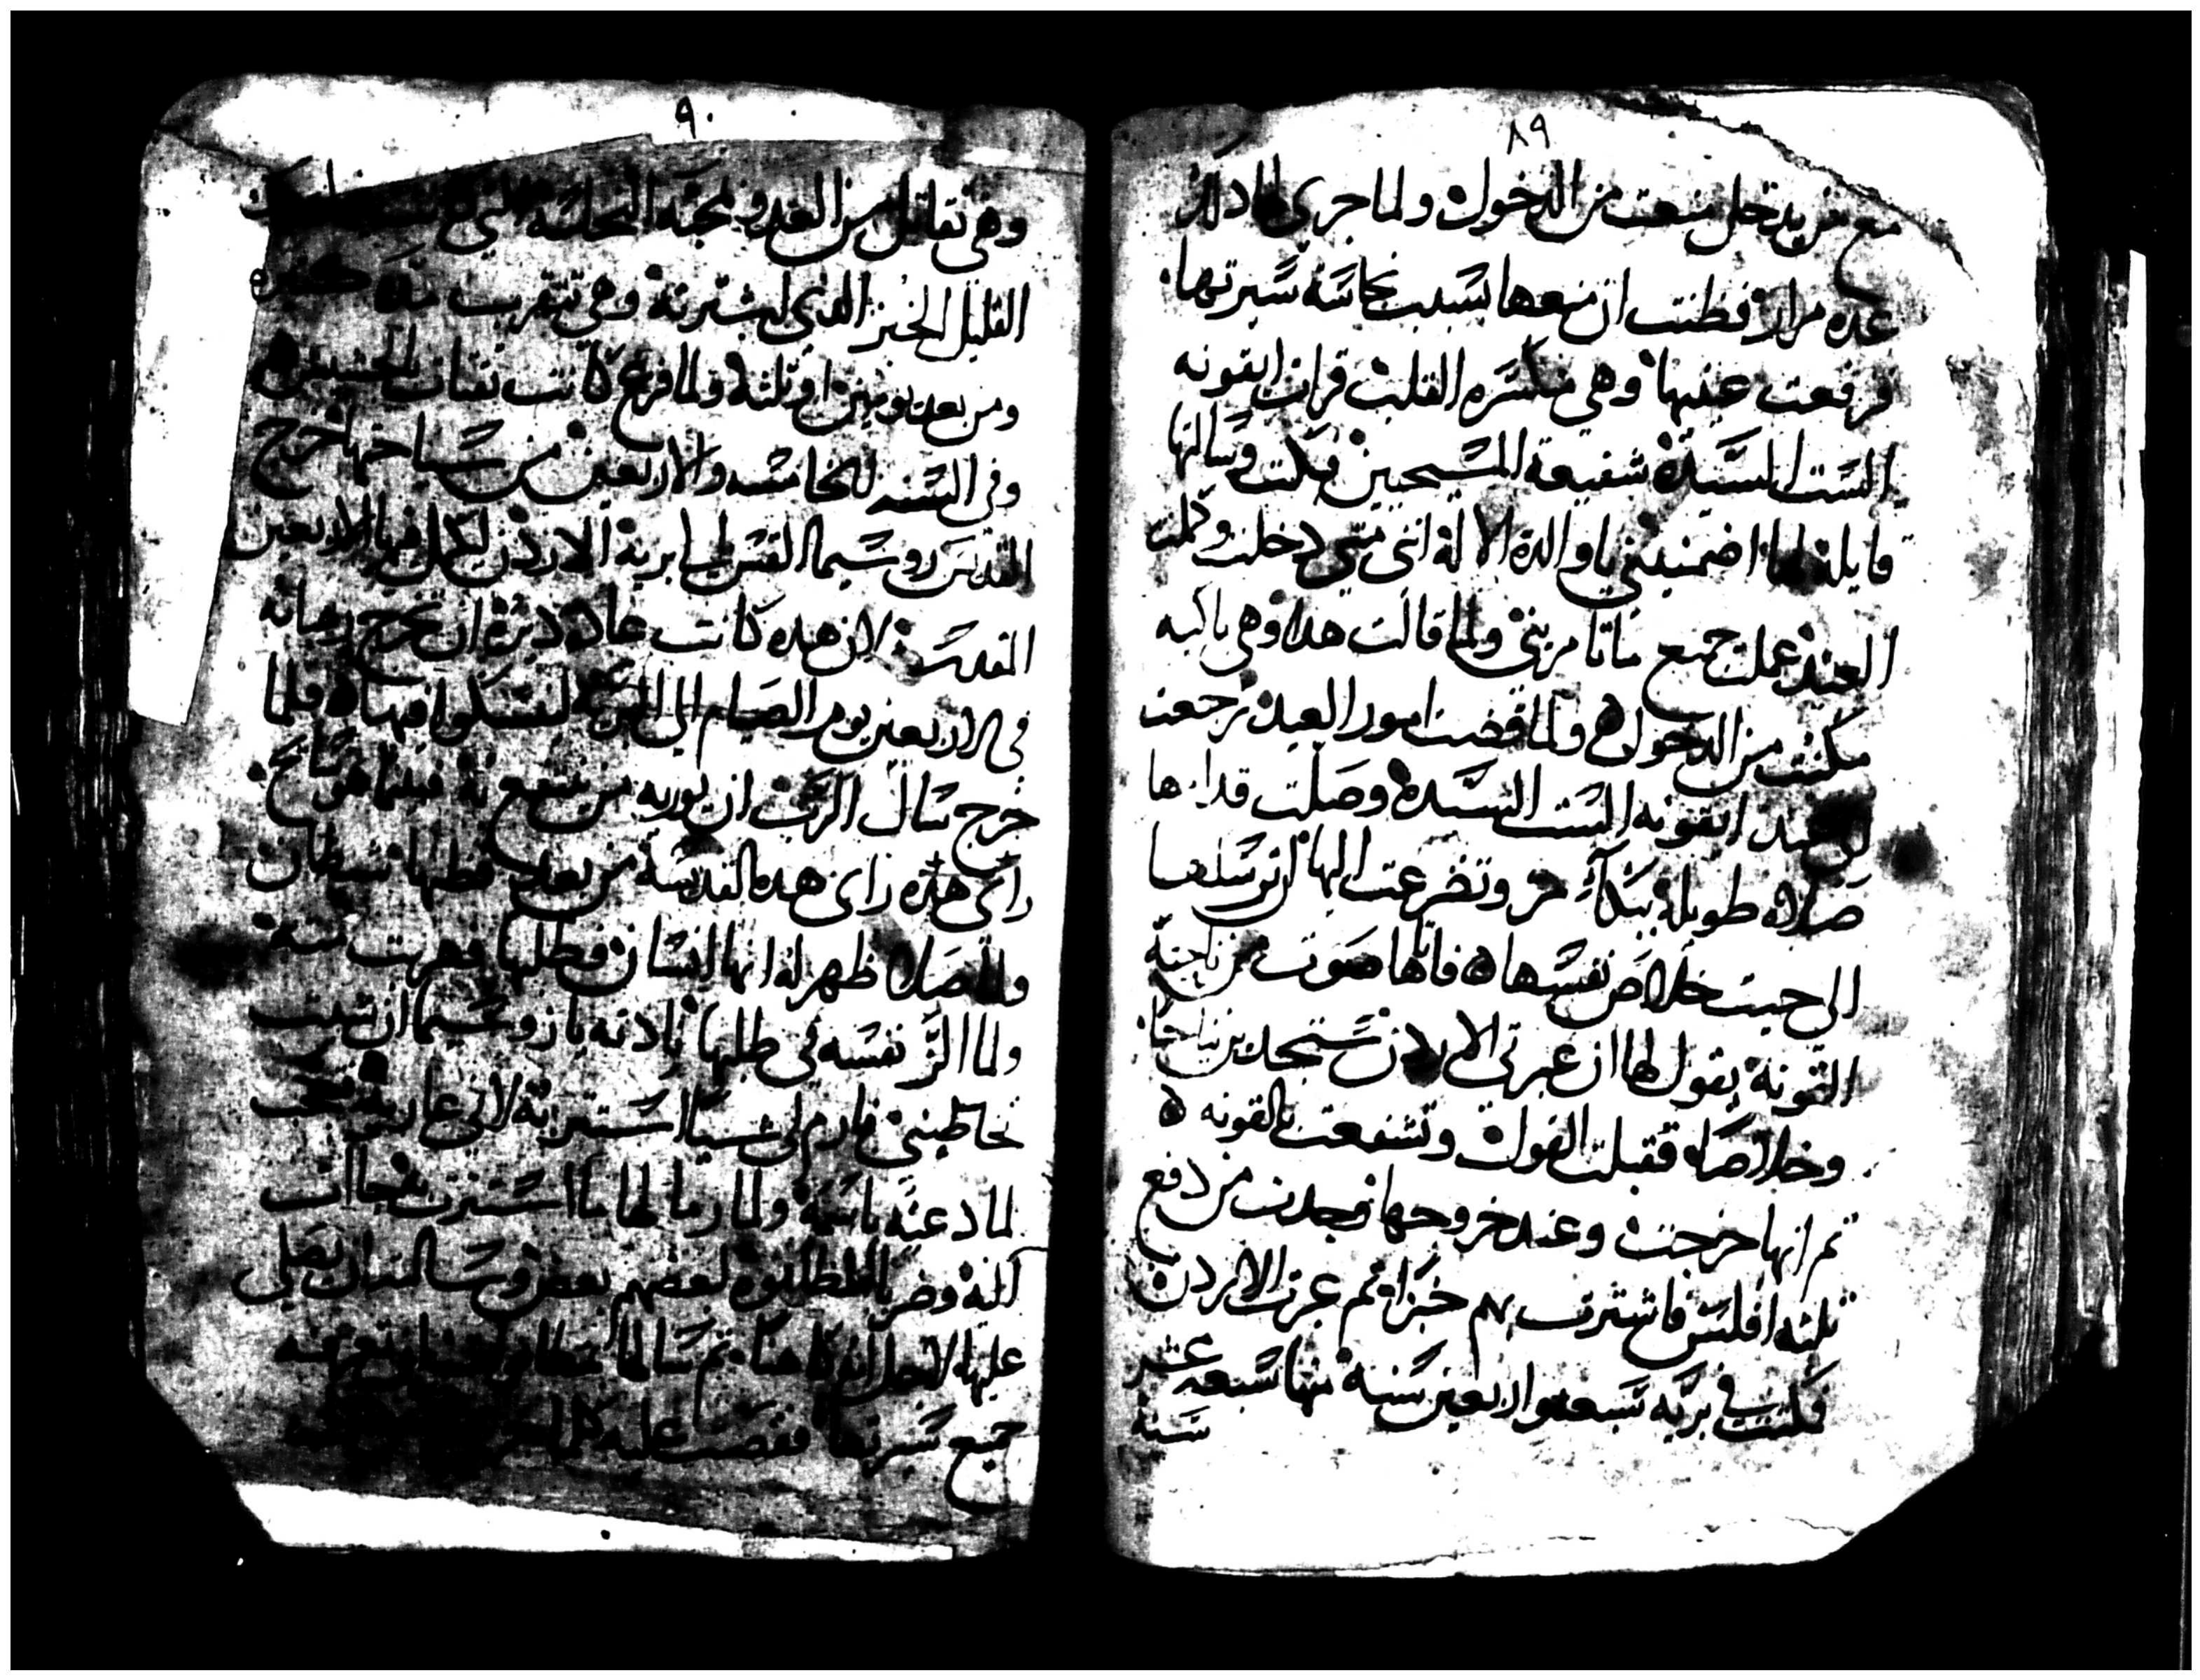 ٨٩
مع من يدخل منعت من الدخول ولما جرى لها ذلك
عده مرار فظنت ان منعها بسبب نجاسة سيرتها
فرفعت عينيها وهي منكسره القلب فرات ايقونه
الست السيدة شفيعة المسيحيين فبكت وسالتها
قايلة لها اضمنيني يا والدة الاله انى متى دخلت وكملت
العيد عملت جميع ما تامريني ولما قالت هدا وهي باكيه
مكنت من الدخول ولما قضت امور العيد رجعت
ايقونه الست السيدة وصلت قدامها
صلاه طويله ببكآء مر وتضرعت اليها ان ترسلها
الى حيت خلاص نفسها فاتاها صوت من ناحية
القونة يقول لها ان عبرتي الاردن ستجدين نياحا
وخلاصا فقبلت القول وتشفعت بالقونه
تم انها خرجت وعند خروجها وجدت من دفع
تلته افلس فاشترت بهم خبزا تم عبرت الاردن
فمكثت في بريه سبعه واربعين سنة منها سبعه عشر
سنة
٩٠
وهي تقاتل من العدو لمحبة النجاسة التي
القليل الخبز الذي اشترته وهي تتقرب منه
ومن بعد يومين او تلته ولما فرغ كانت تقتات الحشيش
وفي السنه الخامسه والاربعين من سياحتها خرج
القديس زوسيما القس الى برية الاردن ليكمل فيها الاربعين
المقدسة لان هده كانت عادة ديرة ان تخرج رهبانه
في الاربعين يوم الصيام الى البرية ليتنسكوا فيها فلما
خرج سال الرب ان يوريه من ينتفع به فبينما هو سايح
راى هده القديسة من بعد فظنها شيطان
ولما صلا ظهر له انها انسان فطلبها فهربت منه
ولما الز نفسه في طلبها نادته يا زوسيما ان شيت
تخاطبني فارم لي شيا استتر به لاني عارية فتعجب
لما دعته باسمة ولما رما لها ما استترت به جات
اليه وضربا المطانوه لبعضهم بعض وسالته ان يصلي
عليها لاجل انه كاهنا تم سالها
جميع سيرتها فقصت عليه كلما